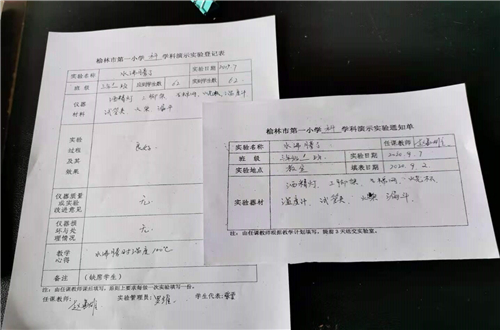 榆林市第一小学 科 学科演示实验登记表
实验名称 水沸腾了 实验日期
班级 应到学生数 62 实到学生数 62
仪器材料 酒精灯 三脚架 石棉网 火柴 温度计
试管夹 漏斗
实验过程及其效果 良好
仪器装置或实验改进意见 无
仪器损坏与处理情况 无
教学心得 水沸腾时温度100℃
备注 (缺席学生)
注:由任课教师课后填写,
任课教师: 实验管理员: 学生代表:
榆林市第一小学 科 学科演示实验通知单
实验名称 水沸腾了 任课教师
班级 实验日期 2020.9.7
实验地点 教室 填表日期 2020.9.2
实验器材 酒精灯 三脚架 石棉网
温度计 试管夹 火柴 漏斗
注:由任课教师根据教学计划填写,提前3天送交实验室。